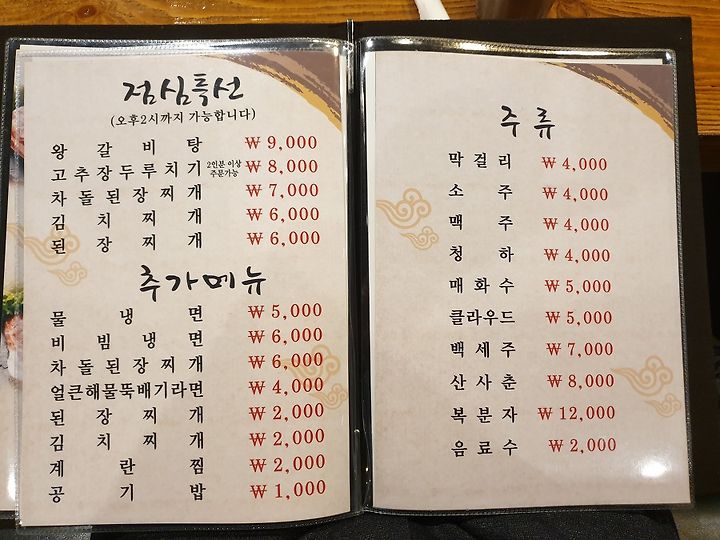 점심특선
(오후2시까지 가능합니다)
왕갈비탕 ₩ 9,000
고추장두루치기 2인분 이상 주문가능 ₩ 8,000
차돌된장찌개 ₩ 7,000
김치찌개 ₩ 6,000
된장찌개 ₩ 6,000
추가메뉴
물냉면 ₩ 5,000
비빔냉면 ₩ 6,000
차돌된장찌개 ₩ 6,000
얼큰해물뚝배기라면 ₩ 4,000
된장찌개 ₩ 2,000
김치찌개 ₩ 2,000
계란찜 ₩ 2,000
공기밥 ₩ 1,000
주류
막걸리 ₩ 4,000
소주 ₩ 4,000
맥주 ₩ 4,000
청하 ₩ 4,000
매화수 ₩ 5,000
클라우드 ₩ 5,000
백세주 ₩ 7,000
산사춘 ₩ 8,000
복분자 ₩ 12,000
음료수 ₩ 2,000